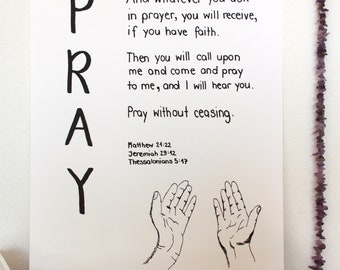 P
R
A
Y
And whatever you ask
in prayer, you will receive,
if you have faith.
Then you will call upon
me and come and pray
to me, and I will hear you.
Pray without ceasing.
Matthew 21:22
Jeremiah 29:12
Thessalonians 5:17